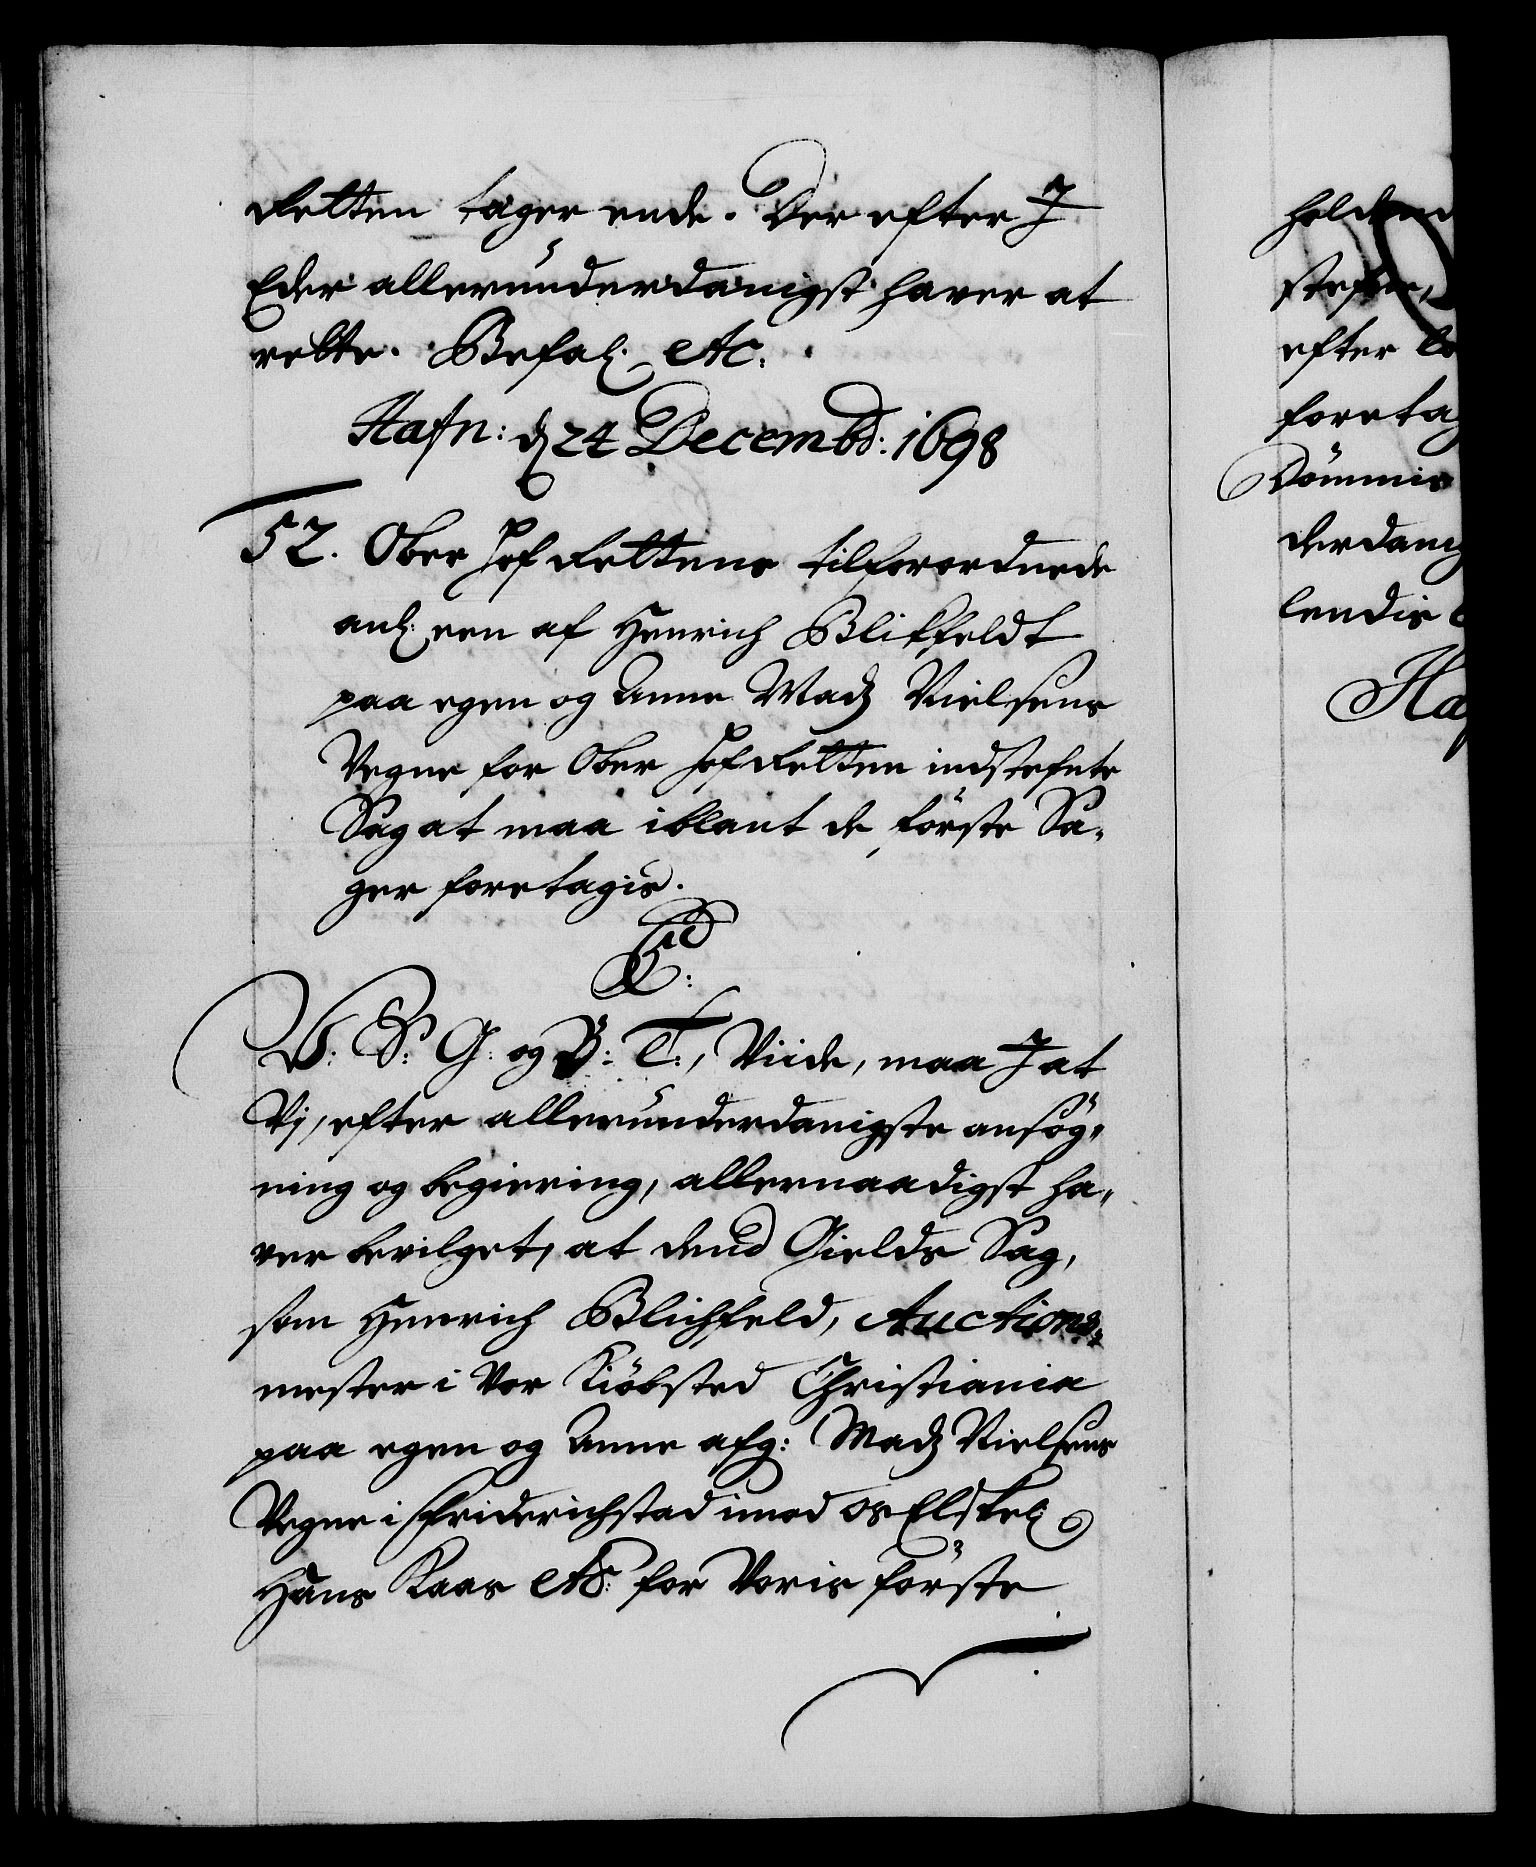 Retten tager ende. Der efter I
Eder allerunderdanigst haver at
rette. Befal: etc:
Hafn: d 24 Decembr: 1698
52. Ober Hof Rettens tilforordnede
anl: een af Henrich Blikfeldt
paa egen og Anne Madz Nielsens
Vegne for Ober Hof Retten indstefnte
Sag at maa iblant de förste Sa,
ger foretagis.
C:
V: S: G: og B: T:, Viide, maa I at
Vj, efter allerunderdanigste ansög,
ning og begiering, allernaadigst ha,
ver bevilget, at dend Gields Sag,
som Henrich Blichfeld, Auctions,
mester i Vor Kiöbsted Christiania
paa egen og Anne afg: Madz Nielsens
Vegne i Friderichstad imod os Elskel:
Hans Kaas etc: for Voris förste
holdend
stefne,
efter be
foretag
Dömmis
derdanig
lendis
Haf